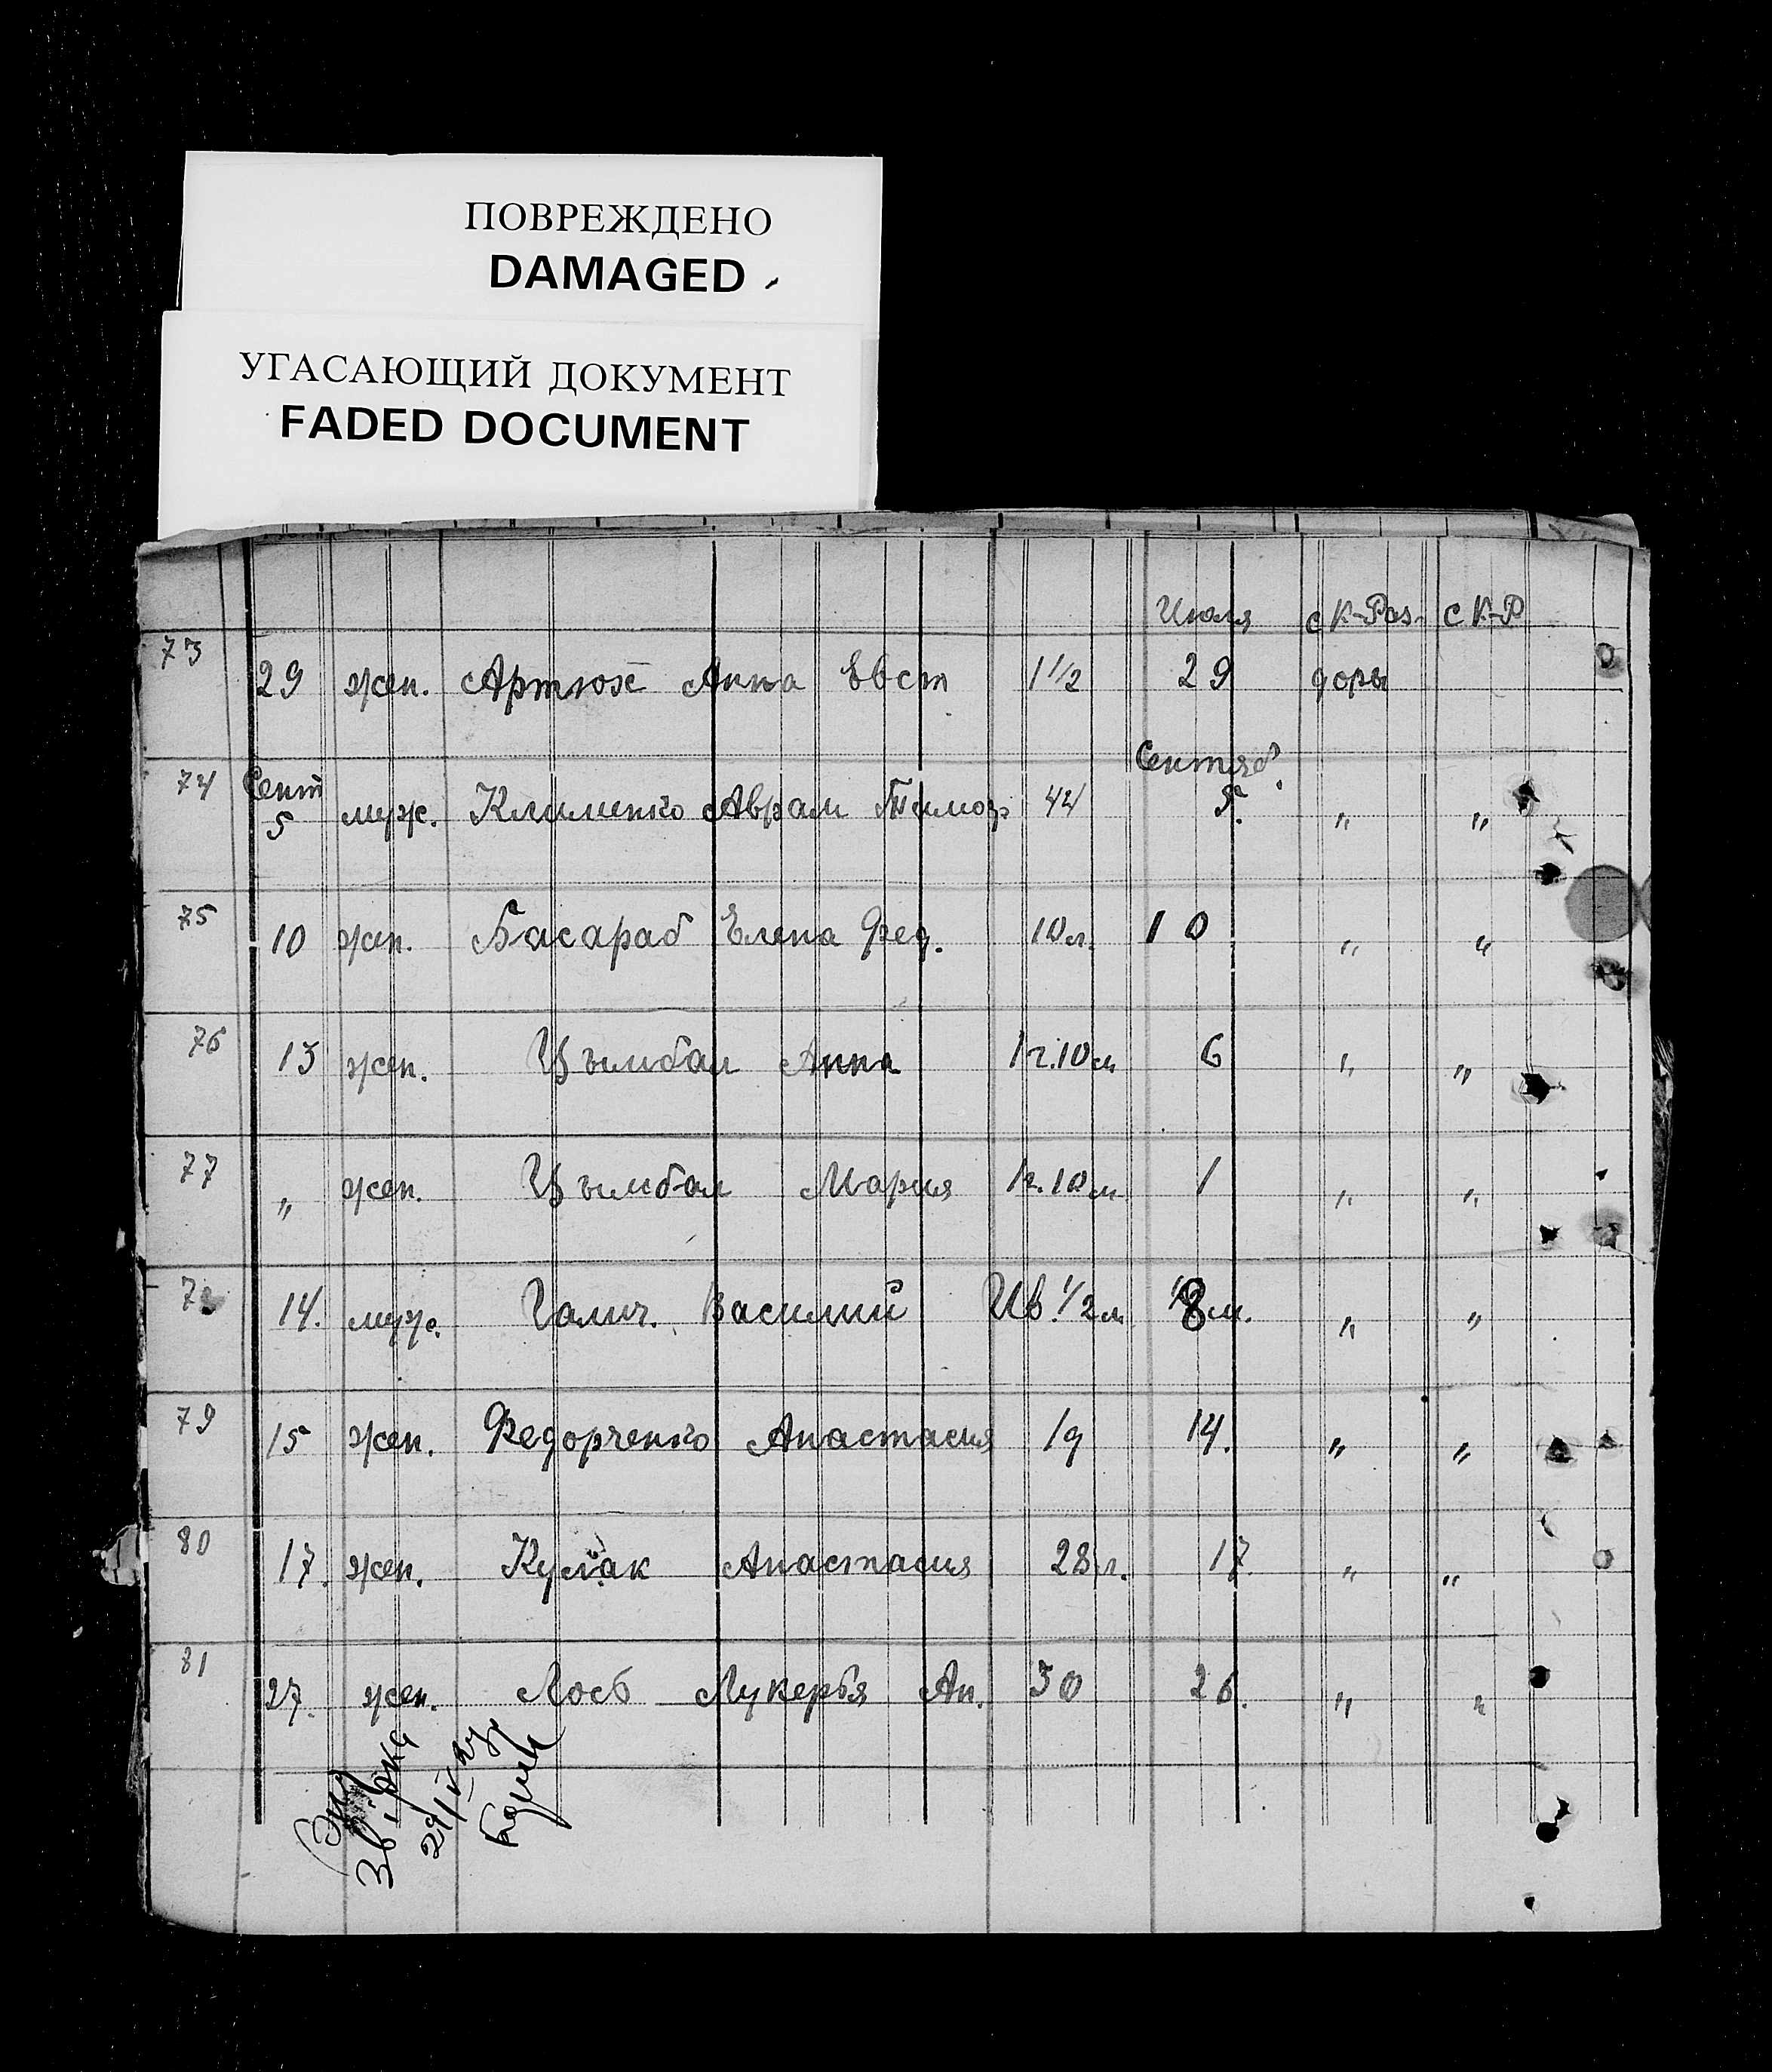 ПОВРЕЖДЕНО
DAMAGED
УГАСАЮЩИЙ ДОКУМЕНТ
FADED DOCUMENT
Июля с К-Раз- с К-Р
73 29 жен. Артюх Анна Евст 1 1/2 29 доры
74 Сент 5 муж. Клименко Аврам Тимоф 44 Сентяб. 5. " "
75 10 жен. Басараб Елена Фед. 10 л. 10 " "
76 13 жен. Цымбал Анна 1 г. 10 м 6 " "
77 " жен. Цымбал Мария 1 г. 10 м 1 " "
14. муж. Галич. Василий 1/2 м 8 м. " "
79 15 жен. Федорченко Анастасия 19 14. " "
80 17. жен. Кулак Анастасия 28 л. 17. " "
81 27. жен. Лось Лукерья Ан. 30 26. " "